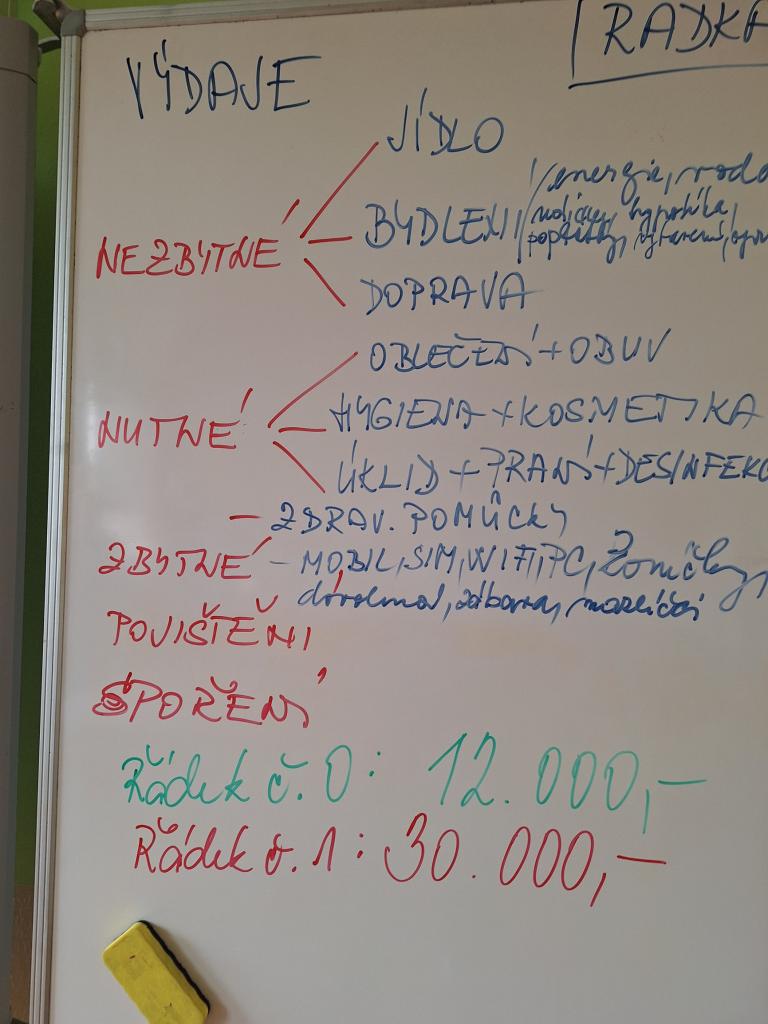 RADKA
VÝDAJE
JÍDLO
NEZBYTNÉ
BYDLENÍ /energie, voda
nájem, hypotéka,
poplatky, vybavení,
DOPRAVA
OBLEČENÍ + OBUV
NUTNÉ
HYGIENA + KOSMETIKA
ÚKLID + PRANÍ + DESINFEKC
- ZDRAV. POMŮCKY
ZBYTNÉ - MOBIL, SIM, WIFI, PC,
dovolená, zábava, mazlíčci
POJIŠTĚNÍ
SPOŘENÍ
Řádek č. 0: 12.000,-
Řádek č. 1: 30.000,-